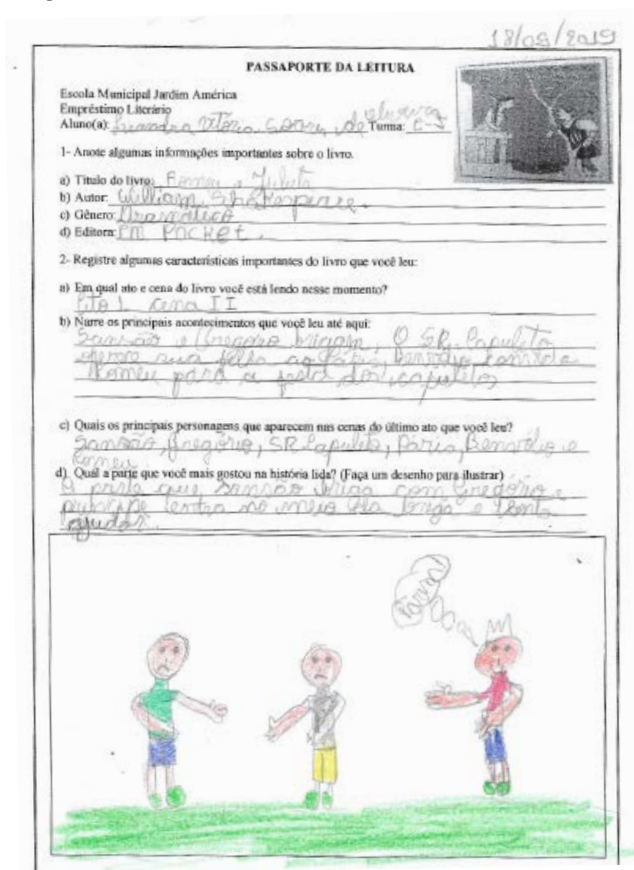 18/09/2019
PASSAPORTE DA LEITURA
Escola Municipal Jardim América
Empréstimo Literário
Aluno(a): Leandra Vitória de Oliveira Turma:
1- Anote algumas informações importantes sobre o livro.
a) Título do livro: Romeu e Julieta
b) Autor: William Shakespeare.
c) Gênero: Dramático
d) Editora: PM POCKET.
2- Registre algumas características importantes do livro que você leu:
a) Em qual ato e cena do livro você está lendo nesse momento?
Ato 1 cena II
b) Narre os principais acontecimentos que você leu até aqui:
Sansão e Gregório brigam, O SR. Capuleto
oferece sua filha ao Páris, Benvólio convida
Romeu para a festa dos capuletos
c) Quais os principais personagens que aparecem nas cenas do último ato que você leu?
Sansão, Gregório, SR Capuleto, Páris, Benvólio e
Romeu
d) Qual a parte que você mais gostou na história lida? (Faça um desenho para ilustrar)
A parte que Sansão briga com Gregório e
principe entra no meio da briga e tenta
ajudar.
Parem!